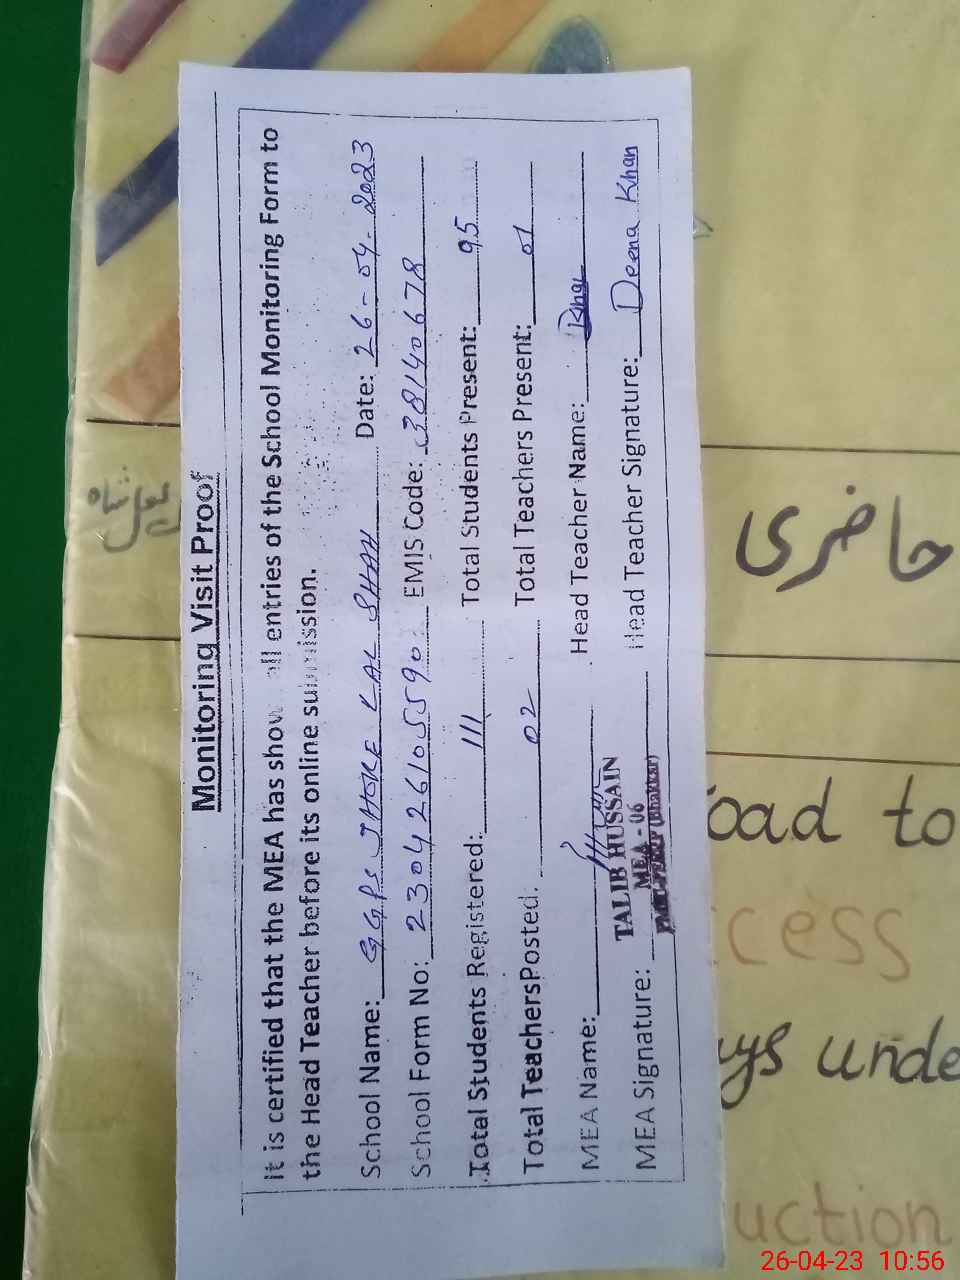 Monitoring Visit Proof
It is certified that the MEA has shown all entries of the School Monitoring Form to
the Head Teacher before its online submission.
School Name: GGPS JHOKE LAL SHAH Date: 26-04-2023
School Form No: 230426105590 EMIS Code: 38140678
Total Students Registered: 111 Total Students Present: 95
Total TeachersPosted: 02 Total Teachers Present: 01
MEA Name: Head Teacher Name:
TALIB HUSSAIN
MEA - 06
(Bhakkar)
MEA Signature: Head Teacher Signature: Deena Khan
حاضری
شاہ
oad to
cess
ays unde
uction
26-04-23 10:56